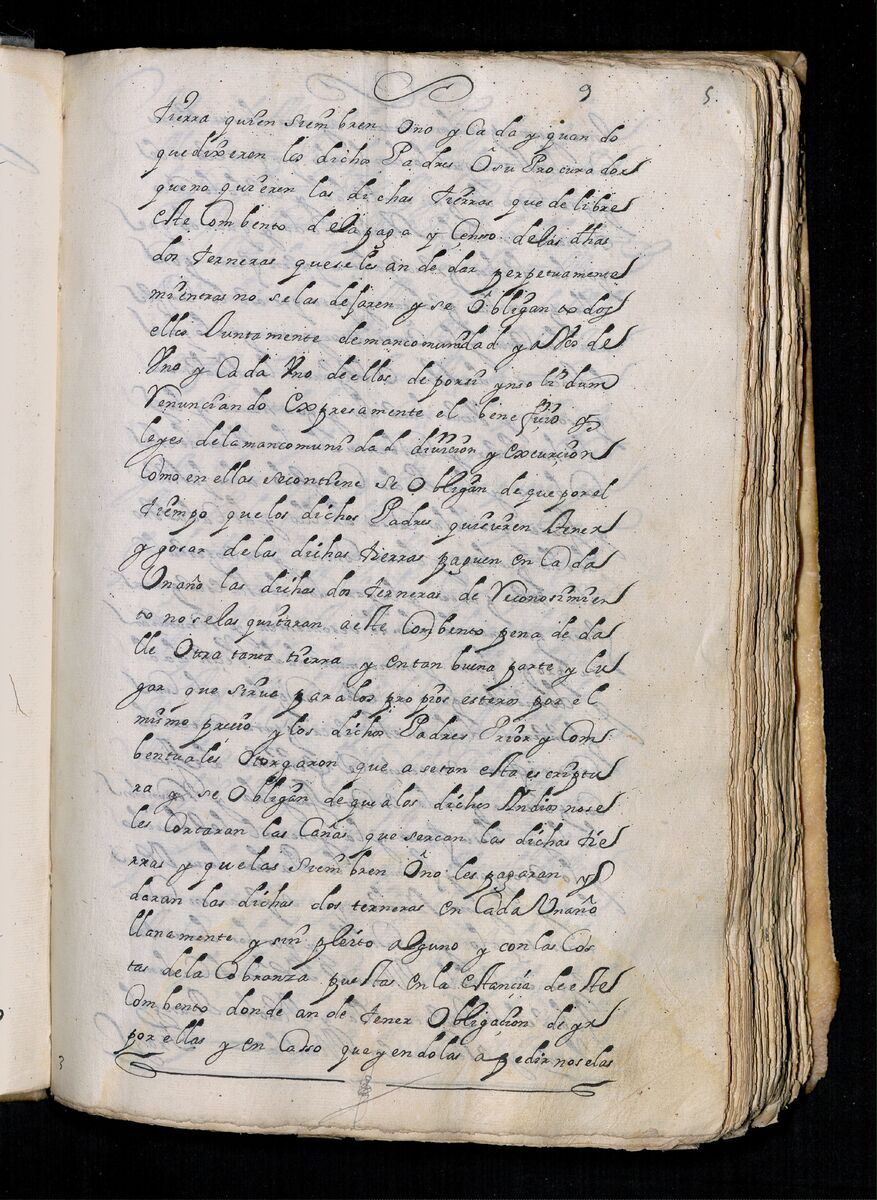 9 5.
tierra quien siembren Ono y Cada y quan do
quedixeren los dichos Padres Ô su Procurador
queno quieren las dichas tierras que de libre
este Combento dela paga y Çenso delas dhas
dos terneras queseles an de dar perpetuamente
mientras no selas dejaren y se Obligan todos
ellos Juntamente demancomunidad y a Vos de
Vno y Cada Vno de ellos de porsi ynsolidum
Renunciando Expresamente el beneficio
leyes delamancomunidad diviçion y excurçion
Como en ellas secontiene se Obligan de que por el
tiempo quelos dichos Padres quisieren tener
y gosar delas dichas tierras paguen en Cada
Unaño las dichas dos terneras de Reconosimien
to no selas quitaran a este Combento pena de da
lle Otra tanta tierra y en tan buena parte y lu
gar que sirua para los propios esteros por el
mismo preçio y los dichos Padres Prior y Com
bentuales Otorgaron que asetan esta escriptu
ra y se Obligan de que alos dichos Yndios nose
les Cortaran las Cañas que sercan las dichas tie
rras y quelas siembren Ôno les pagaran y
daran las dichas dos terneras en Cada Unaño
llanamente y sin pleito alguno y con las Cos
tas dela Cobranza puestas en la estançia de este
Combento donde an de tener Obligaçion de yr
por ellas y en Casso que yendolas a pedir noselas
3